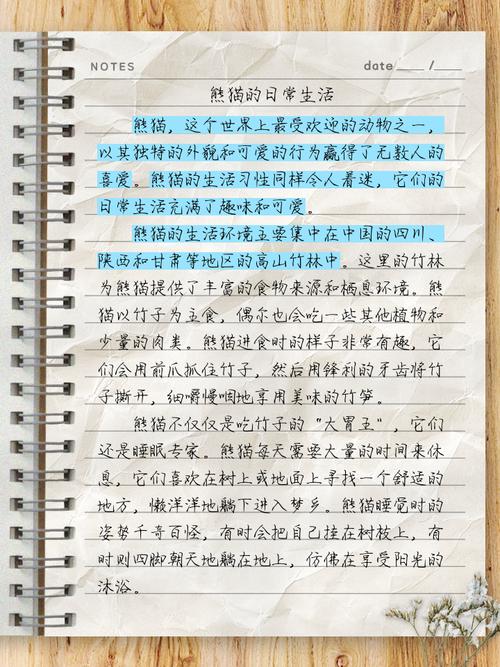 NOTES
date____/____
熊猫的日常生活
熊猫，这个世界上最受欢迎的动物之一，
以其独特的外貌和可爱的行为赢得了无数人的
喜爱。熊猫的生活习性同样令人着迷，它们的
日常生活充满了趣味和可爱。
熊猫的生活环境主要集中在中国的四川、
陕西和甘肃等地区的高山竹林中。这里的竹林
为熊猫提供了丰富的食物来源和栖息环境。熊
猫以竹子为主食，偶尔也会吃一些其他植物和
少量的肉类。熊猫进食时的样子非常有趣，它
们会用前爪抓住竹子，然后用锋利的牙齿将竹
子撕开，细嚼慢咽地享用美味的竹笋。
熊猫不仅仅是吃竹子的“大胃王”，它们
还是睡眠专家。熊猫每天需要大量的时间来休
息，它们喜欢在树上或地面上寻找一个舒适的
地方，懒洋洋地躺下进入梦乡。熊猫睡觉时的
姿势千奇百怪，有时会把自己挂在树枝上，有
时则四脚朝天地躺在地上，仿佛在享受阳光的
沐浴。